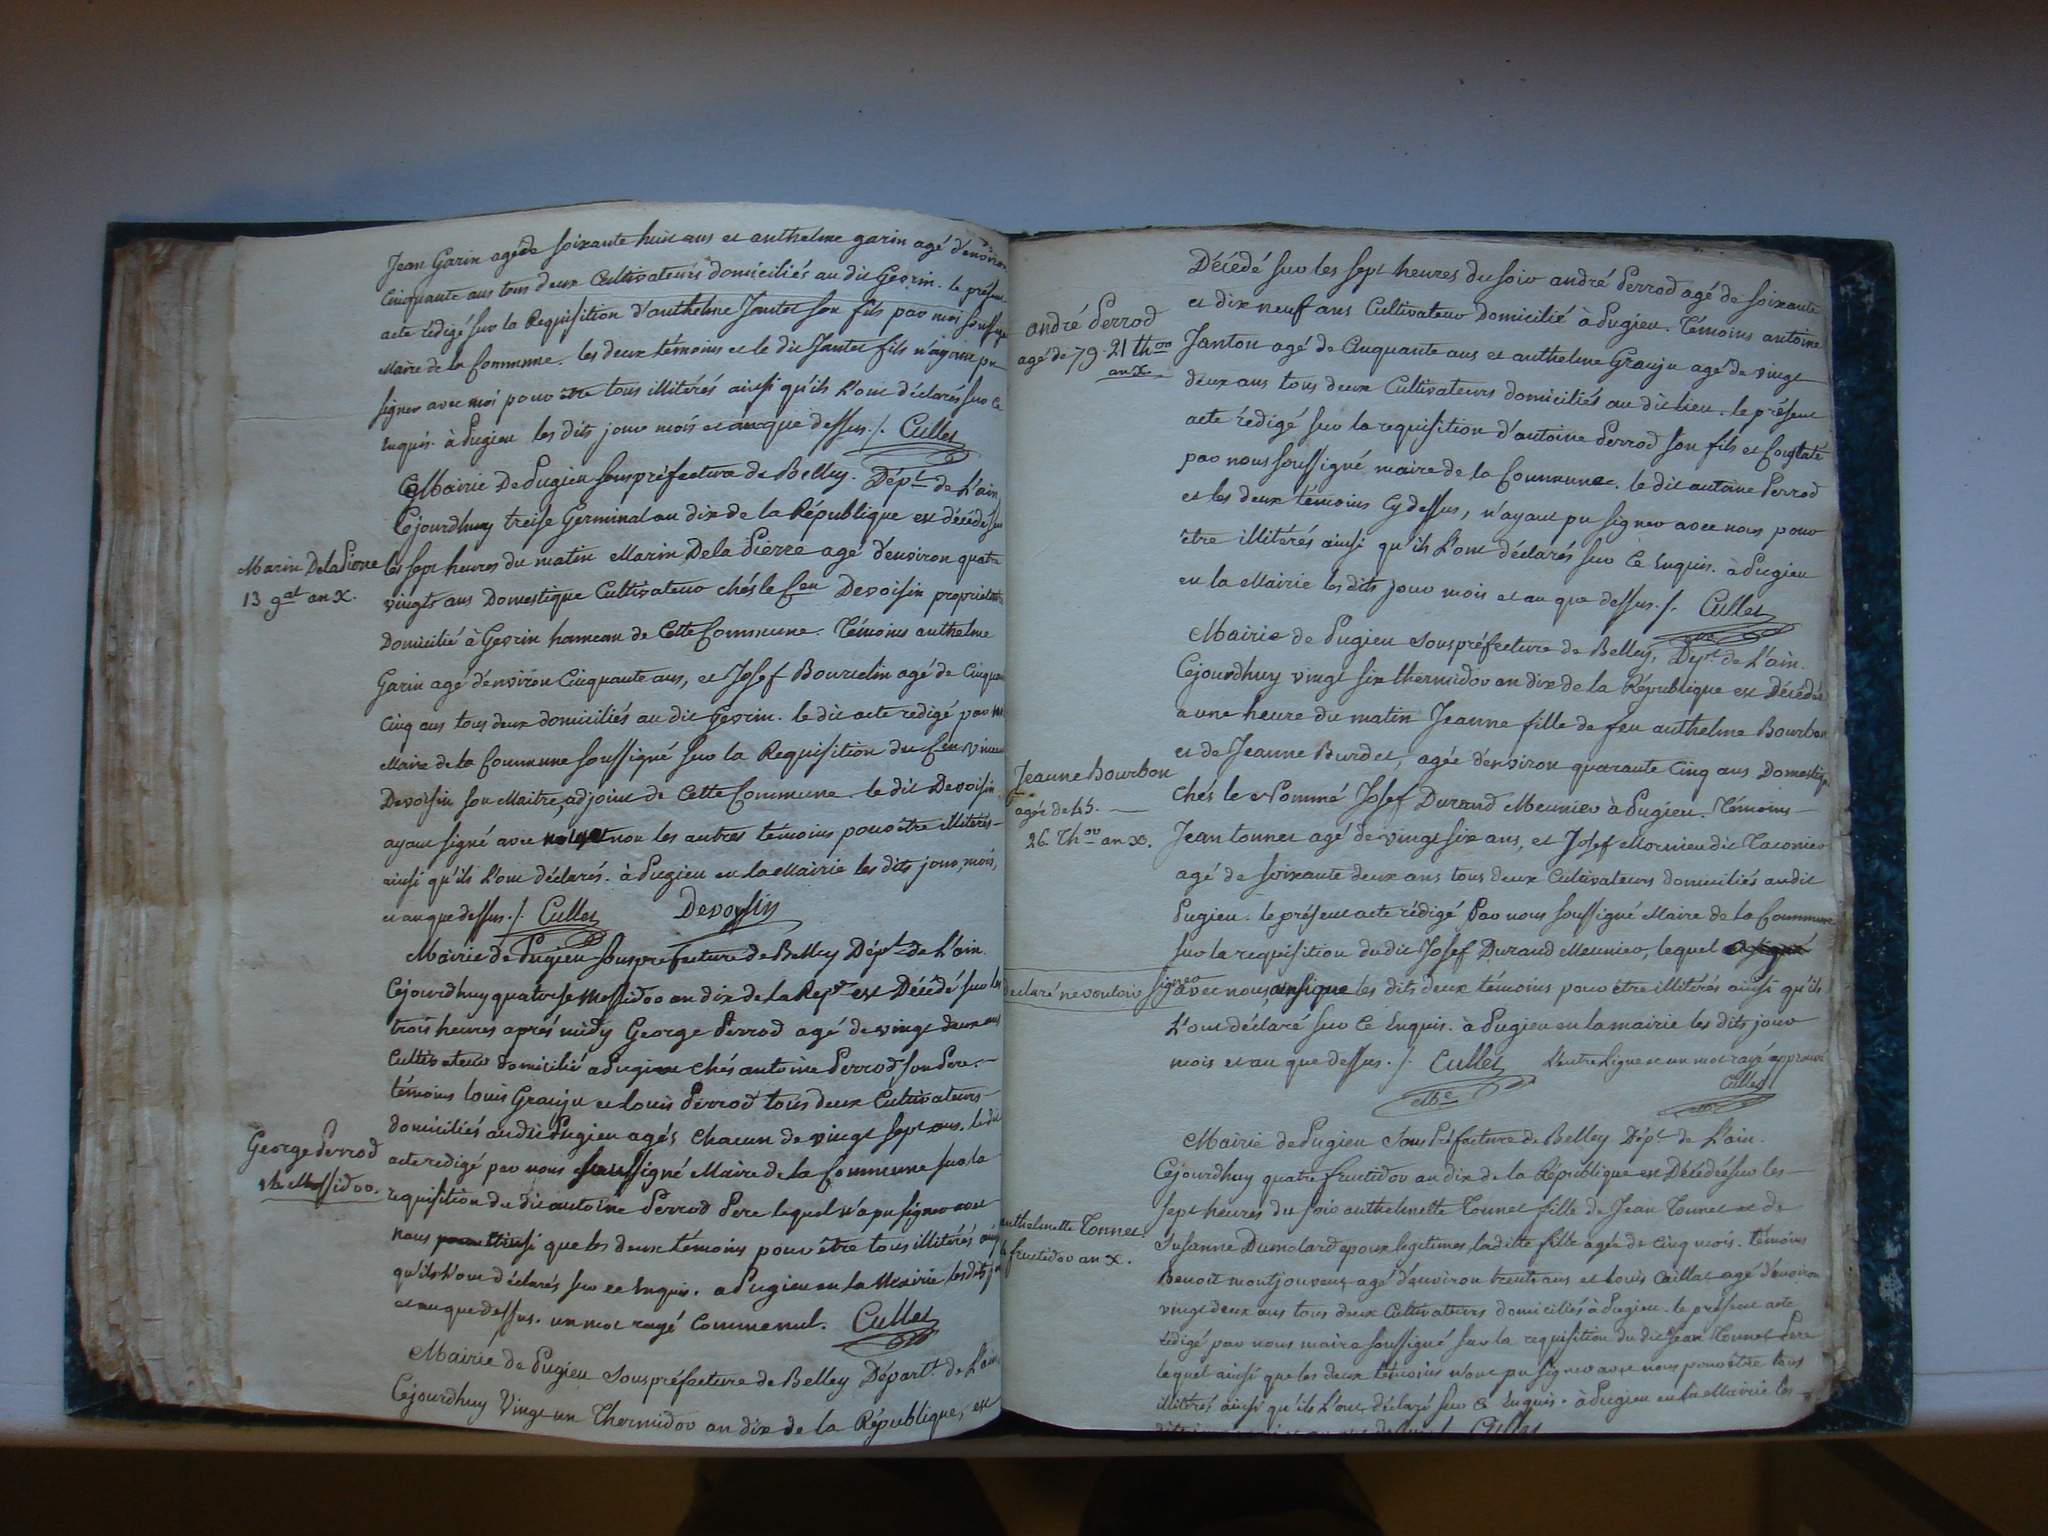 Jean Garin agé de soixante huit ans et anthelme garin agé d'environ
Cinquante ans tous deux Cultivateurs domiciliés au dit Gevrin. le présent
acte rédigé sur la Requisition d'anthelme Jantet son fils par moi soussigné
Maire de la Commune. les deux témoins et le dit Jantet fils n'ayant pu
signer avec moi pour être tous illitérés ainsi qu'ils L'ont déclarés sur ce
enquis. à Pugieu les dits jour mois et an que dessus ./. Cullet
Mairie De Pugieu souspréfecture de Belley. Dépt. de L'ain
Cejourdhuy treise Germinal an dix de la République est décédé sur
Marin DelaPierre
13 gal an X.
les sept heures du matin Marin Dela Pierre agé d'environ quatre
vingts ans Domestique Cultivateur chés le Cen Devoisin proprietaire
Domicilié à Gevrin hameau de Cette Commune. Témoins anthelme
Garin agé d'environ Cinquante ans, et Josef Bourdin agé de Cinquante
Cinq ans tous deux domiciliés au dit Gevrin. le dit acte redigé par
Maire de la Commune soussigné sur la Requisition du Cen Vincent
Devoisin son Maitre, adjoint de Cette Commune. le dit Devoisin
ayant signé avec non les autres témoins pour être illitérés
ainsi qu'ils L'ont déclarés. à Pugieu en la Mairie les dits jour, mois,
et an que dessus ./. Cullet Devoisin
Mairie de Pugieu Souspréfecture de Belley Dépt. de L'ain.
Cejourdhuy quatorse Messidor an dix de la Repe. est Décédé sur les
trois heures aprés midy George Perrod agé de vingt deux ans
Cultivateur domicilié à Pugieu chés antoine Perrod son Pere.
témoins louis Grauju et louis Perrod tous deux Cultivateurs
domiciliés audit Pugieu agés chacun de vingt sept ans. le dit
George Perrod
14 Messidor.
acte redigé par nous soussigné Maire de la Commune sur la
requisition du dit antoine Perrod Pere lequel n'a pu signer avec
nous ainsi que les deux témoins pour être tous illitérés ainsi
qu'ils L'ont déclarés sur ce enquis. à Pugieu en la Mairie les dits jour
et an que dessus. un mot rayé Comme nul. Cullet
Mairie de Pugieu Souspréfecture de Belley Départt. de L'ain
Cejourdhuy Vingt un Thermidor an dix de la République, est
Décédé sur les sept heures du soir andré Perrod agé de soixante
et dix neuf ans Cultivateur Domicilié à Pugieu. Témoins antoine
andré Perrod
agé de 79. 21 thor
an X.
Janton agé de Cinquante ans et anthelme Grauju agé de vingt
deux ans tous deux Cultivateurs domiciliés au dit lieu. le présent
acte rédigé sur la requisition d'antoine Perrod son fils et Constaté
par nous soussigné maire de la Commune. le dit antoine Perrod
et les deux témoins Cydessus, n'ayant pu signer avec nous pour
être illitérés ainsi qu'ils L'ont déclarés sur Ce Enquis. à Pugieu
en la Mairie les dits jour mois et an que dessus. /. Cullet
Mairie de Pugieu Souspréfecture de Belley, Dépt. de L'ain.
Cejourdhuy vingt six thermidor an dix de la République est Décédée
a une heure du matin Jeanne fille de feu anthelme Bourbon
et de Jeanne Burdet, agée d'environ quarante Cinq ans Domestique
Jeanne Bourbon
agée de 45.
26. Thor an X.
chés le Nommé Josef Durand Meunier à Pugieu. Témoins
Jean tonnet agé de vingt six ans, et Josef Mornieu dit Taconier
agé de soixante deux ans tous deux Cultivateurs domiciliés audit
Pugieu. le présent acte rédigé Par nous soussigné Maire de la Commune
sur la requisition dudit Josef Durand Meunier, lequel a signé
declaré ne vouloir signer
avec nous, les dits deux témoins pour être illitérés ainsi qu'ils
L'ont déclaré sur Ce Enquis. à Pugieu en la mairie les dits jour
mois et an que dessus. /. Cullet L'entre Ligne et un mot rayé approuvé
Mre Cullet
Mairie de Pugieu SousPréfecture de Belley Dépt. de L'ain.
Cejourdhuy quatre fructidor an dix de la République est Décédée sur les
anthelmette Tonnet
4 fructidor an X.
sept heures du soir anthelmette Tonnet fille de Jean Tonnet et de
Susanne Dumolard epoux legitimes, laditte fille agée de cinq mois. témoins
Benoit montjouvent agé d'environ trente ans et Louis Caillat agé d'environ
vingt deux ans tous deux Cultivateurs domiciliés à Pugieu. le présent acte
rédigé par nous maire soussigné sur la requisition du dit Jean Tonnet Pere
lequel ainsi que les deux témoins n'ont pu signer avec nous pour être tous
illitérés ainsi qu'ils L'ont déclaré sur Ce Enquis. à Pugieu en la Mairie les
Cullet